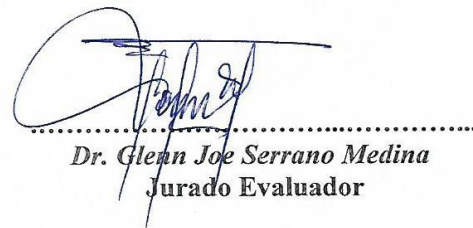 Dr. Glenn Joe Serrano Medina
Jurado Evaluador